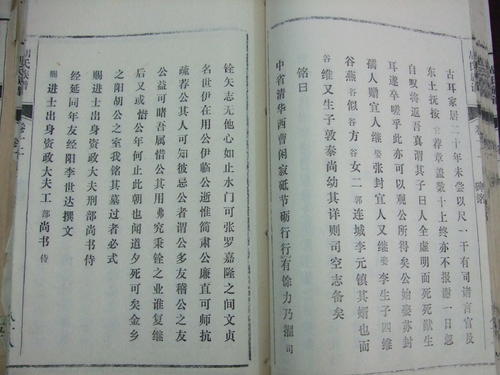 古耳家居二十年未尝以尺一干有司诸言官及
东土抚按会荐章盖数十上终亦不报遘一日忽
自叹将返吾真谓其子曰人全虚明而死死猷生
耳遂卒嗟乎此亦可以观公所得矣公始娄苏封
孺人赠宜人继娶张封宜人又继娶李生子四维
谷燕谷似谷方谷女二郭连城李元镇其婿也而
维又生子敦秦尚幼其详则司空志备矣
铭曰
中省清华西曹闲寂砥节砺行行有馀力乃澜司
铨矢志无他心如止水门可张罗嘉隆之间文贞
名世伊在用公伊临公逝惟简肃公廉直可师抗
疏荐公其人可知彼忌公者谓公多友稽公之友
公益可睹吾属惜公其用弗究秉铨之业谁复继
后又或惜公年何止此朝也闻道夕死可矣金乡
之阳胡公之室我铭其墓过者必式
赐进士出身资政大夫刑部尚书侍
经延同年友经阳李世达撰文
赐进士出身资政大夫工部尚书侍